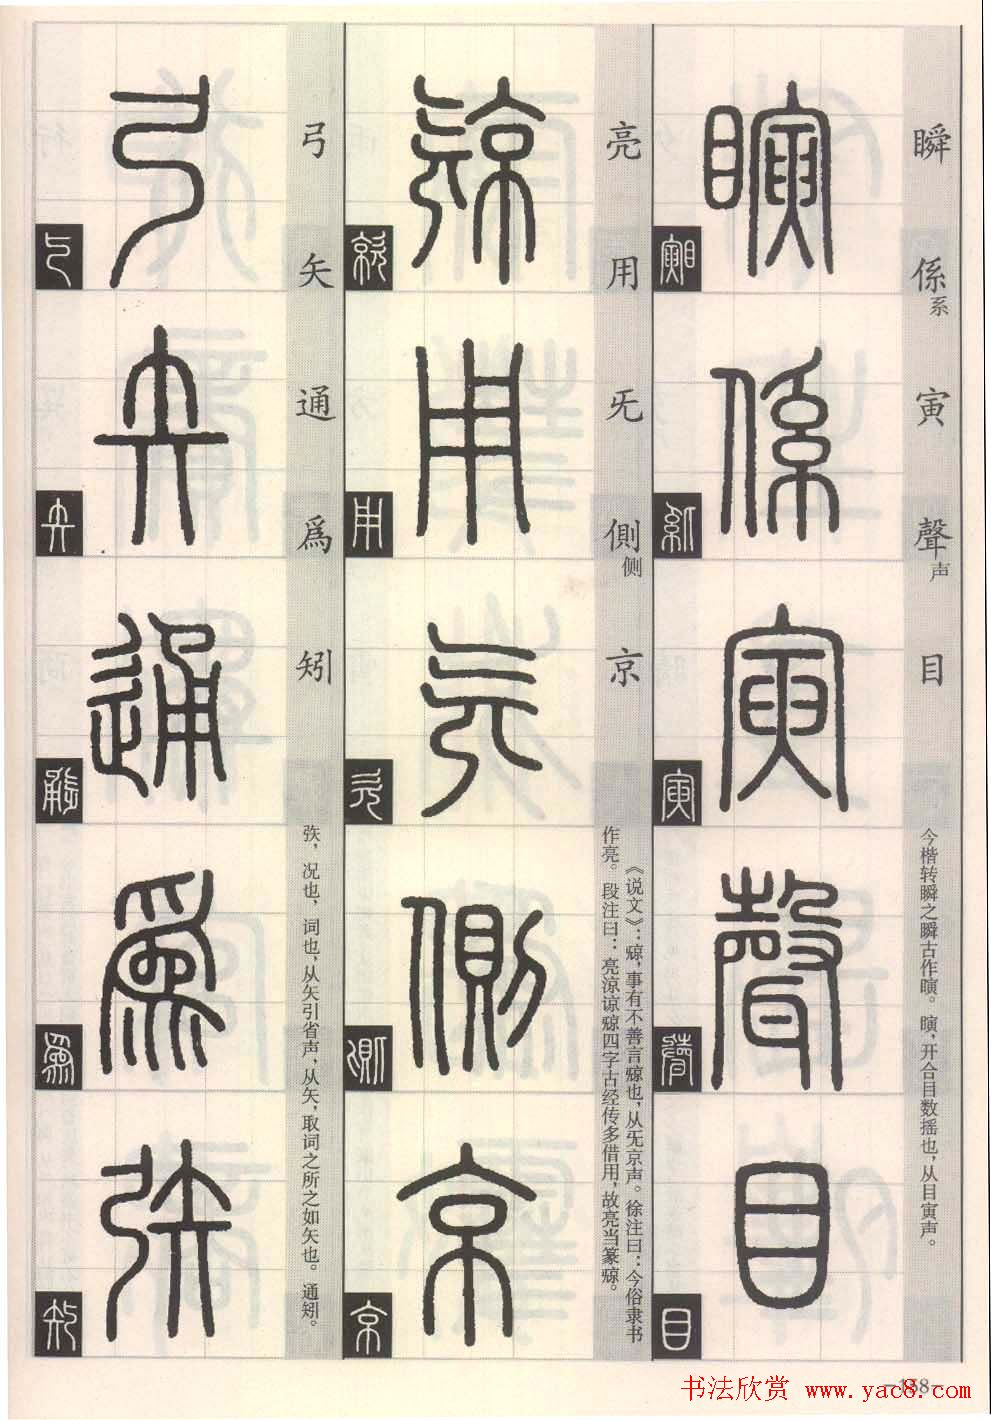 瞬 係系 寅 聲声 目
今楷转瞬之瞬古作瞚。瞚，开合目数摇也，从目寅声。
亮 用 旡 側侧 京
《说文》：𣄴，事有不善言𣄴也，从旡京声。徐注曰：今俗隶书
作亮。段注曰：亮凉谅𣄴四字古经传多借用，故亮当篆𣄴。
弓 矢 通 爲 矧
矤，况也，词也，从矢引省声，从矢，取词之所之如矢也。通矧。
书法欣赏 www.yac8.com